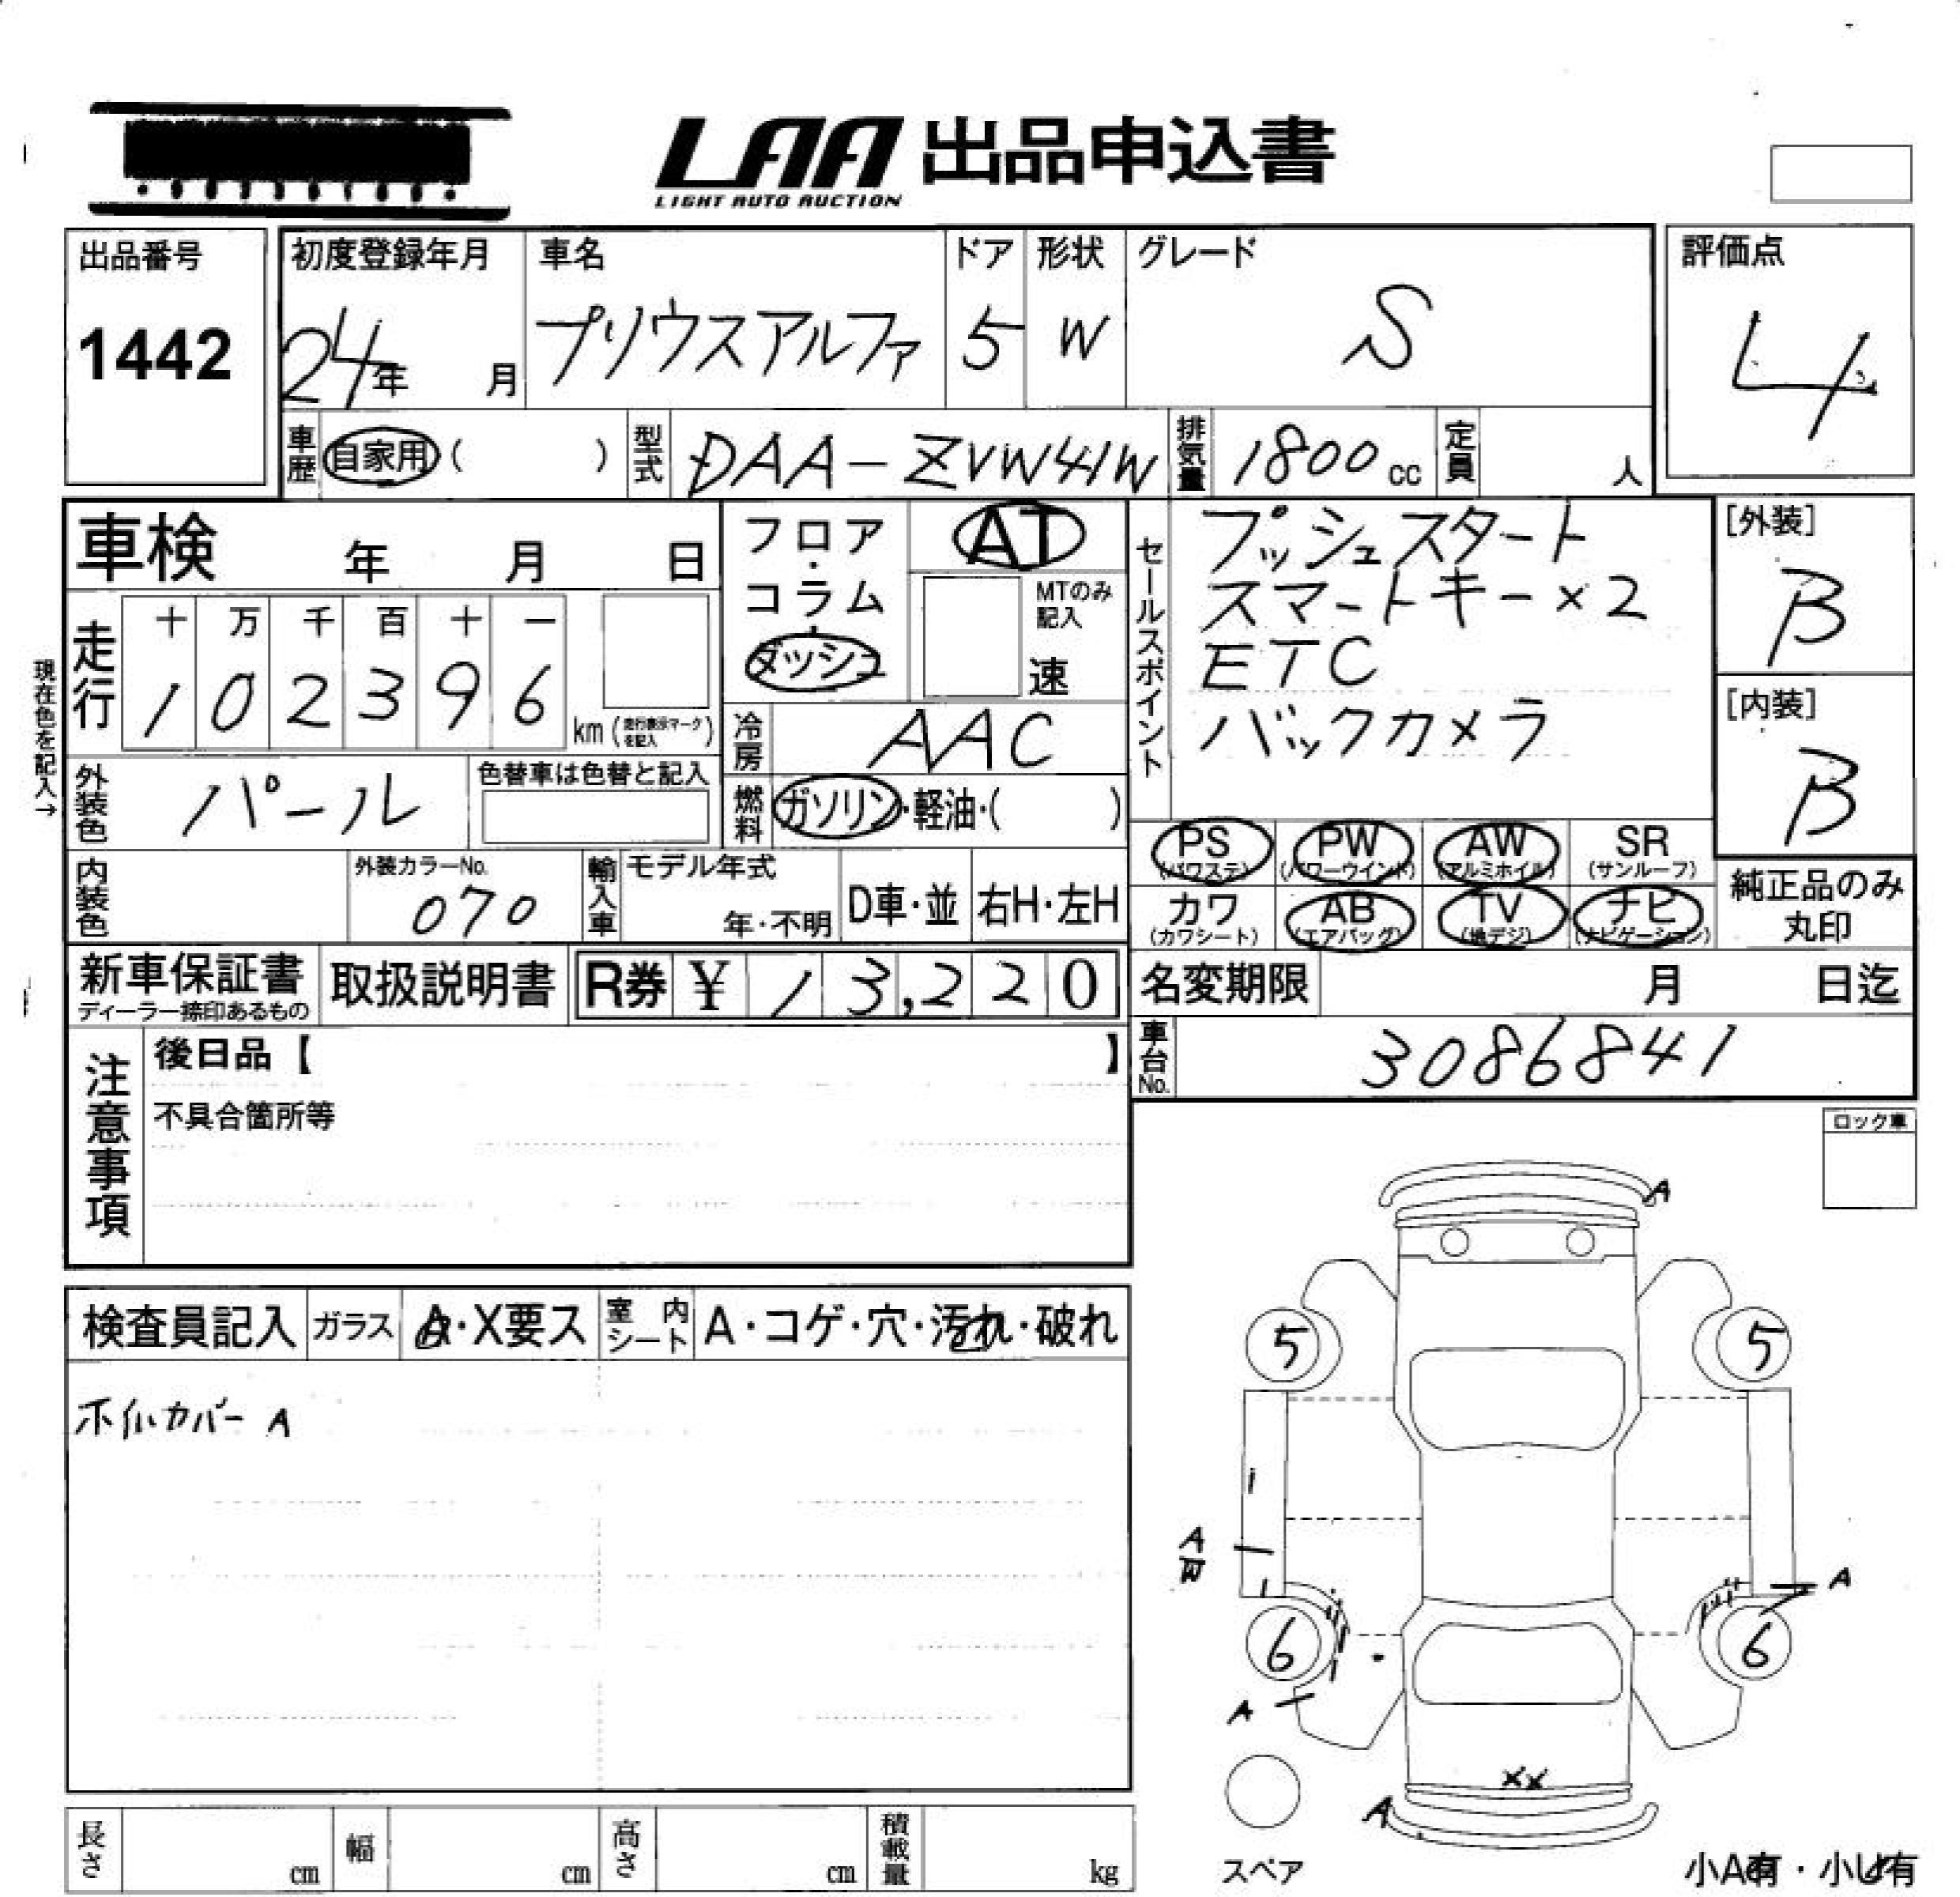 LAA 出品申込書
LIGHT AUTO AUCTION
出品番号
1442
初度登録年月
24年 月
車名
プリウスアルファ
ドア
5
形状
W
グレード
S
評価点
4
車歴 自家用( )
型式 DAA-ZVW41W
排気量 1800cc
定員 人
車検 年 月 日
フロア・コラム・ダッシュ
AT
MTのみ
記入
速
セールスポイント
プッシュスタート
スマートキー×2
ETC
バックカメラ
[外装]
B
[内装]
B
現在色を記入→
走行
十 万 千 百 十 一
1 0 2 3 9 6
km(走行表示マークを記入)
冷房 AAC
外装色 パール
色替車は色替と記入
燃料 ガソリン・軽油・( )
PS
(パワステ)
PW
(パワーウインド)
AW
(アルミホイル)
SR
(サンルーフ)
カワ
(カワシート)
AB
(エアバッグ)
TV
(地デジ)
ナビ
(ナビゲーション)
純正品のみ
丸印
内装色
外装カラーNo.
070
輸入車
モデル年式
年・不明
D車・並
右H・左H
新車保証書
ディーラー捺印あるもの
取扱説明書
R券 ¥ 13,220
名変期限 月 日迄
車台No. 3086841
注意事項
後日品【 】
不具合箇所等
ロック車
検査員記入
ガラス
A・X要ス
室内シート
A・コゲ・穴・汚れ・破れ
ホイルカバー A
A
5
5
A
W
A
6
6
A
XX
A
スペア
小A有・小U有
長さ cm
幅 cm
高さ cm
積載量 kg